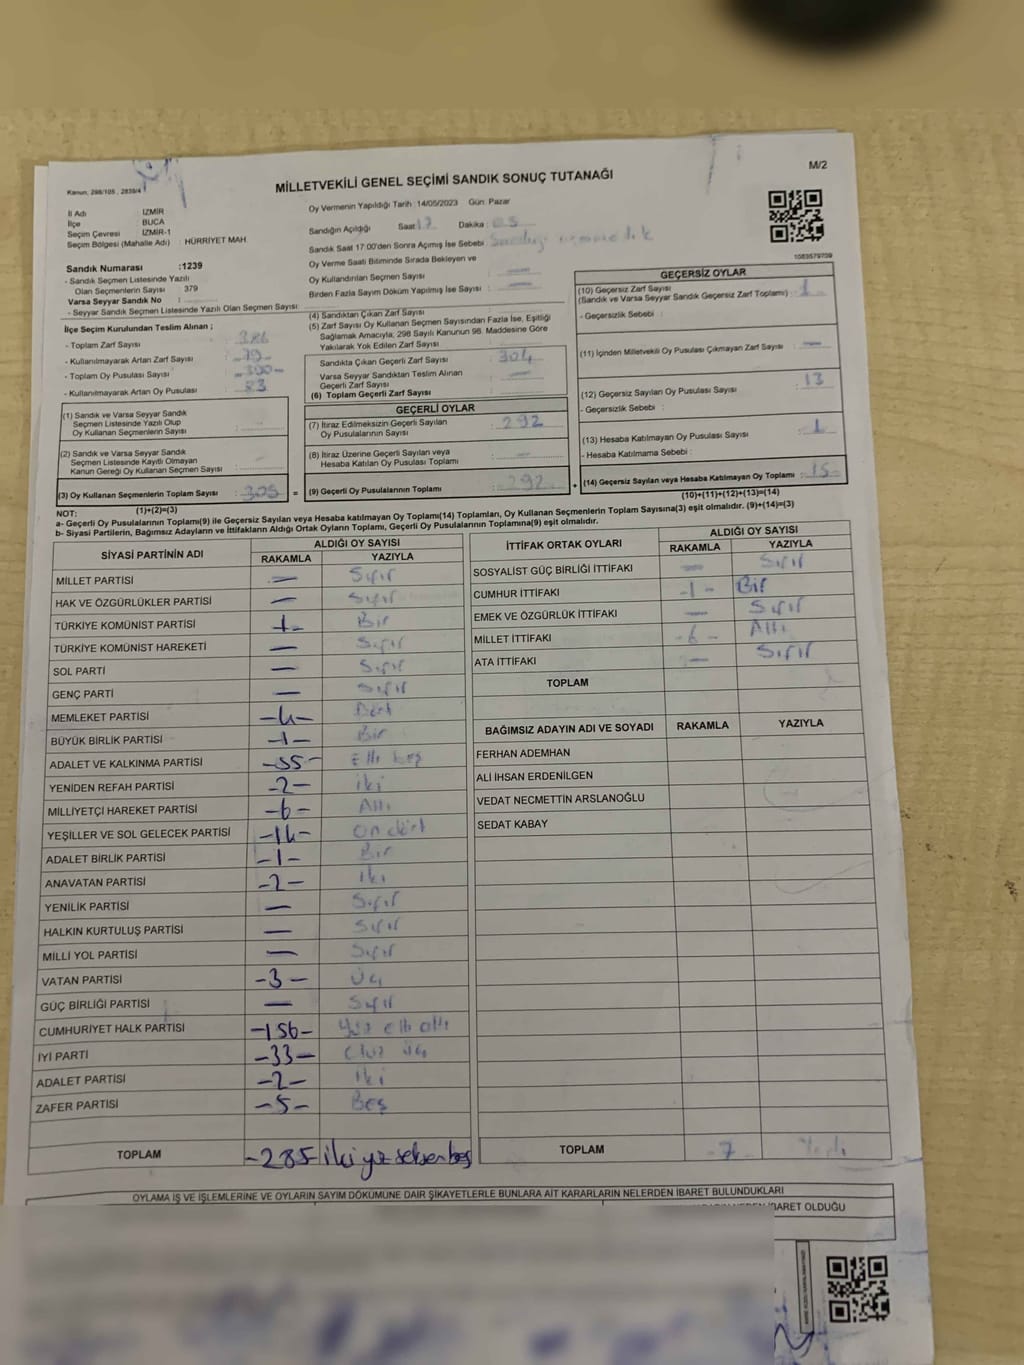 Kanun, 298/105 , 2839/4
M/2
MİLLETVEKİLİ GENEL SEÇİMİ SANDIK SONUÇ TUTANAĞI
İl Adı İZMİR
İlçe BUCA
Seçim Çevresi İZMİR-1
Seçim Bölgesi (Mahalle Adı) : HÜRRİYET MAH
Oy Vermenin Yapıldığı Tarih :14/05/2023 Gün: Pazar
Sandığın Açıldığı Saat 17 Dakika :
Sandık Saat 17:00'den Sonra Açımış İse Sebebi :
Oy Verme Saati Bitiminde Sırada Bekleyen ve
Oy Kullandırılan Seçmen Sayısı : —
Birden Fazla Sayım Döküm Yapılmış İse Sayısı : —
1083579709
Sandık Numarası :1239
- Sandık Seçmen Listesinde Yazılı
Olan Seçmenlerin Sayısı 379
Varsa Seyyar Sandık No :
- Seyyar Sandık Seçmen Listesinde Yazılı Olan Seçmen Sayısı:
İlçe Seçim Kurulundan Teslim Alınan ;
- Toplam Zarf Sayısı :
- Kullanılmayarak Artan Zarf Sayısı : -79-
- Toplam Oy Pusulası Sayısı :
- Kullanılmayarak Artan Oy Pusulası : 83
(1) Sandık ve Varsa Seyyar Sandık
Seçmen Listesinde Yazılı Olup
Oy Kullanan Seçmenlerin Sayısı :
(2) Sandık ve Varsa Seyyar Sandık
Seçmen Listesinde Kayıtlı Olmayan
Kanun Gereği Oy Kullanan Seçmen Sayısı :
(3) Oy Kullanan Seçmenlerin Toplam Sayısı : 305 =
(1)+(2)=(3)
(4) Sandıktan Çıkan Zarf Sayısı
(5) Zarf Sayısı Oy Kullanan Seçmen Sayısından Fazla İse, Eşitliği
Sağlamak Amacıyla; 298 Sayılı Kanunun 98. Maddesine Göre
Yakılarak Yok Edilen Zarf Sayısı
Sandıkta Çıkan Geçerli Zarf Sayısı : 304
Varsa Seyyar Sandıktan Teslim Alınan
Geçerli Zarf Sayısı : —
(6) Toplam Geçerli Zarf Sayısı :
GEÇERLİ OYLAR
(7) İtiraz Edilmeksizin Geçerli Sayılan
Oy Pusulalarının Sayısı : 292
(8) İtiraz Üzerine Geçerli Sayılan veya
Hesaba Katılan Oy Pusulası Toplamı : —
(9) Geçerli Oy Pusulalarının Toplamı : 292 +
GEÇERSİZ OYLAR
(10) Geçersiz Zarf Sayısı
(Sandık ve Varsa Seyyar Sandık Geçersiz Zarf Toplamı) : 1
- Geçersizlik Sebebi :
(11) İçinden Milletvekili Oy Pusulası Çıkmayan Zarf Sayısı : —
(12) Geçersiz Sayılan Oy Pusulası Sayısı : 13
- Geçersizlik Sebebi :
(13) Hesaba Katılmayan Oy Pusulası Sayısı : 1
- Hesaba Katılmama Sebebi :
(14) Geçersiz Sayılan veya Hesaba Katılmayan Oy Toplamı : 15
(10)+(11)+(12)+(13)=(14)
NOT:
a- Geçerli Oy Pusulalarının Toplamı(9) ile Geçersiz Sayılan veya Hesaba katılmayan Oy Toplamı(14) Toplamları, Oy Kullanan Seçmenlerin Toplam Sayısına(3) eşit olmalıdır. (9)+(14)=(3)
b- Siyasi Partilerin, Bağımsız Adayların ve İttifakların Aldığı Ortak Oyların Toplamı, Geçerli Oy Pusulalarının Toplamına(9) eşit olmalıdır.
SİYASİ PARTİNİN ADI ALDIĞI OY SAYISI
RAKAMLA YAZIYLA
MİLLET PARTİSİ — Sıfır
HAK VE ÖZGÜRLÜKLER PARTİSİ — Sıfır
TÜRKİYE KOMÜNİST PARTİSİ -1- Bir
TÜRKİYE KOMÜNİST HAREKETİ — Sıfır
SOL PARTİ — Sıfır
GENÇ PARTİ — Sıfır
MEMLEKET PARTİSİ -4- Dört
BÜYÜK BİRLİK PARTİSİ -1- Bir
ADALET VE KALKINMA PARTİSİ -55- Elli beş
YENİDEN REFAH PARTİSİ -2- iki
MİLLİYETÇİ HAREKET PARTİSİ -6- Altı
YEŞİLLER VE SOL GELECEK PARTİSİ -14- on dört
ADALET BİRLİK PARTİSİ -1- Bir
ANAVATAN PARTİSİ -2- İki
YENİLİK PARTİSİ — Sıfır
HALKIN KURTULUŞ PARTİSİ — Sıfır
MİLLİ YOL PARTİSİ — Sıfır
VATAN PARTİSİ -3- Üç
GÜÇ BİRLİĞİ PARTİSİ — Sıfır
CUMHURİYET HALK PARTİSİ -156- Yüz elli altı
İYİ PARTİ -33- Otuz üç
ADALET PARTİSİ -2- İki
ZAFER PARTİSİ -5- Beş
TOPLAM -285- iki yüz seksen beş
İTTİFAK ORTAK OYLARI ALDIĞI OY SAYISI
RAKAMLA YAZIYLA
SOSYALİST GÜÇ BİRLİĞİ İTTİFAKI — Sıfır
CUMHUR İTTİFAKI -1- Bir
EMEK VE ÖZGÜRLÜK İTTİFAKI — Sıfır
MİLLET İTTİFAKI -6- Altı
ATA İTTİFAKI — Sıfır
TOPLAM
BAĞIMSIZ ADAYIN ADI VE SOYADI RAKAMLA YAZIYLA
FERHAN ADEMHAN
ALİ İHSAN ERDENİLGEN
VEDAT NECMETTİN ARSLANOĞLU
SEDAT KABAY
TOPLAM -7- Yedi
OYLAMA İŞ VE İŞLEMLERİNE VE OYLARIN SAYIM DÖKÜMÜNE DAİR ŞİKAYETLERLE BUNLARA AİT KARARLARIN NELERDEN İBARET BULUNDUKLARI
İBARET OLDUĞU